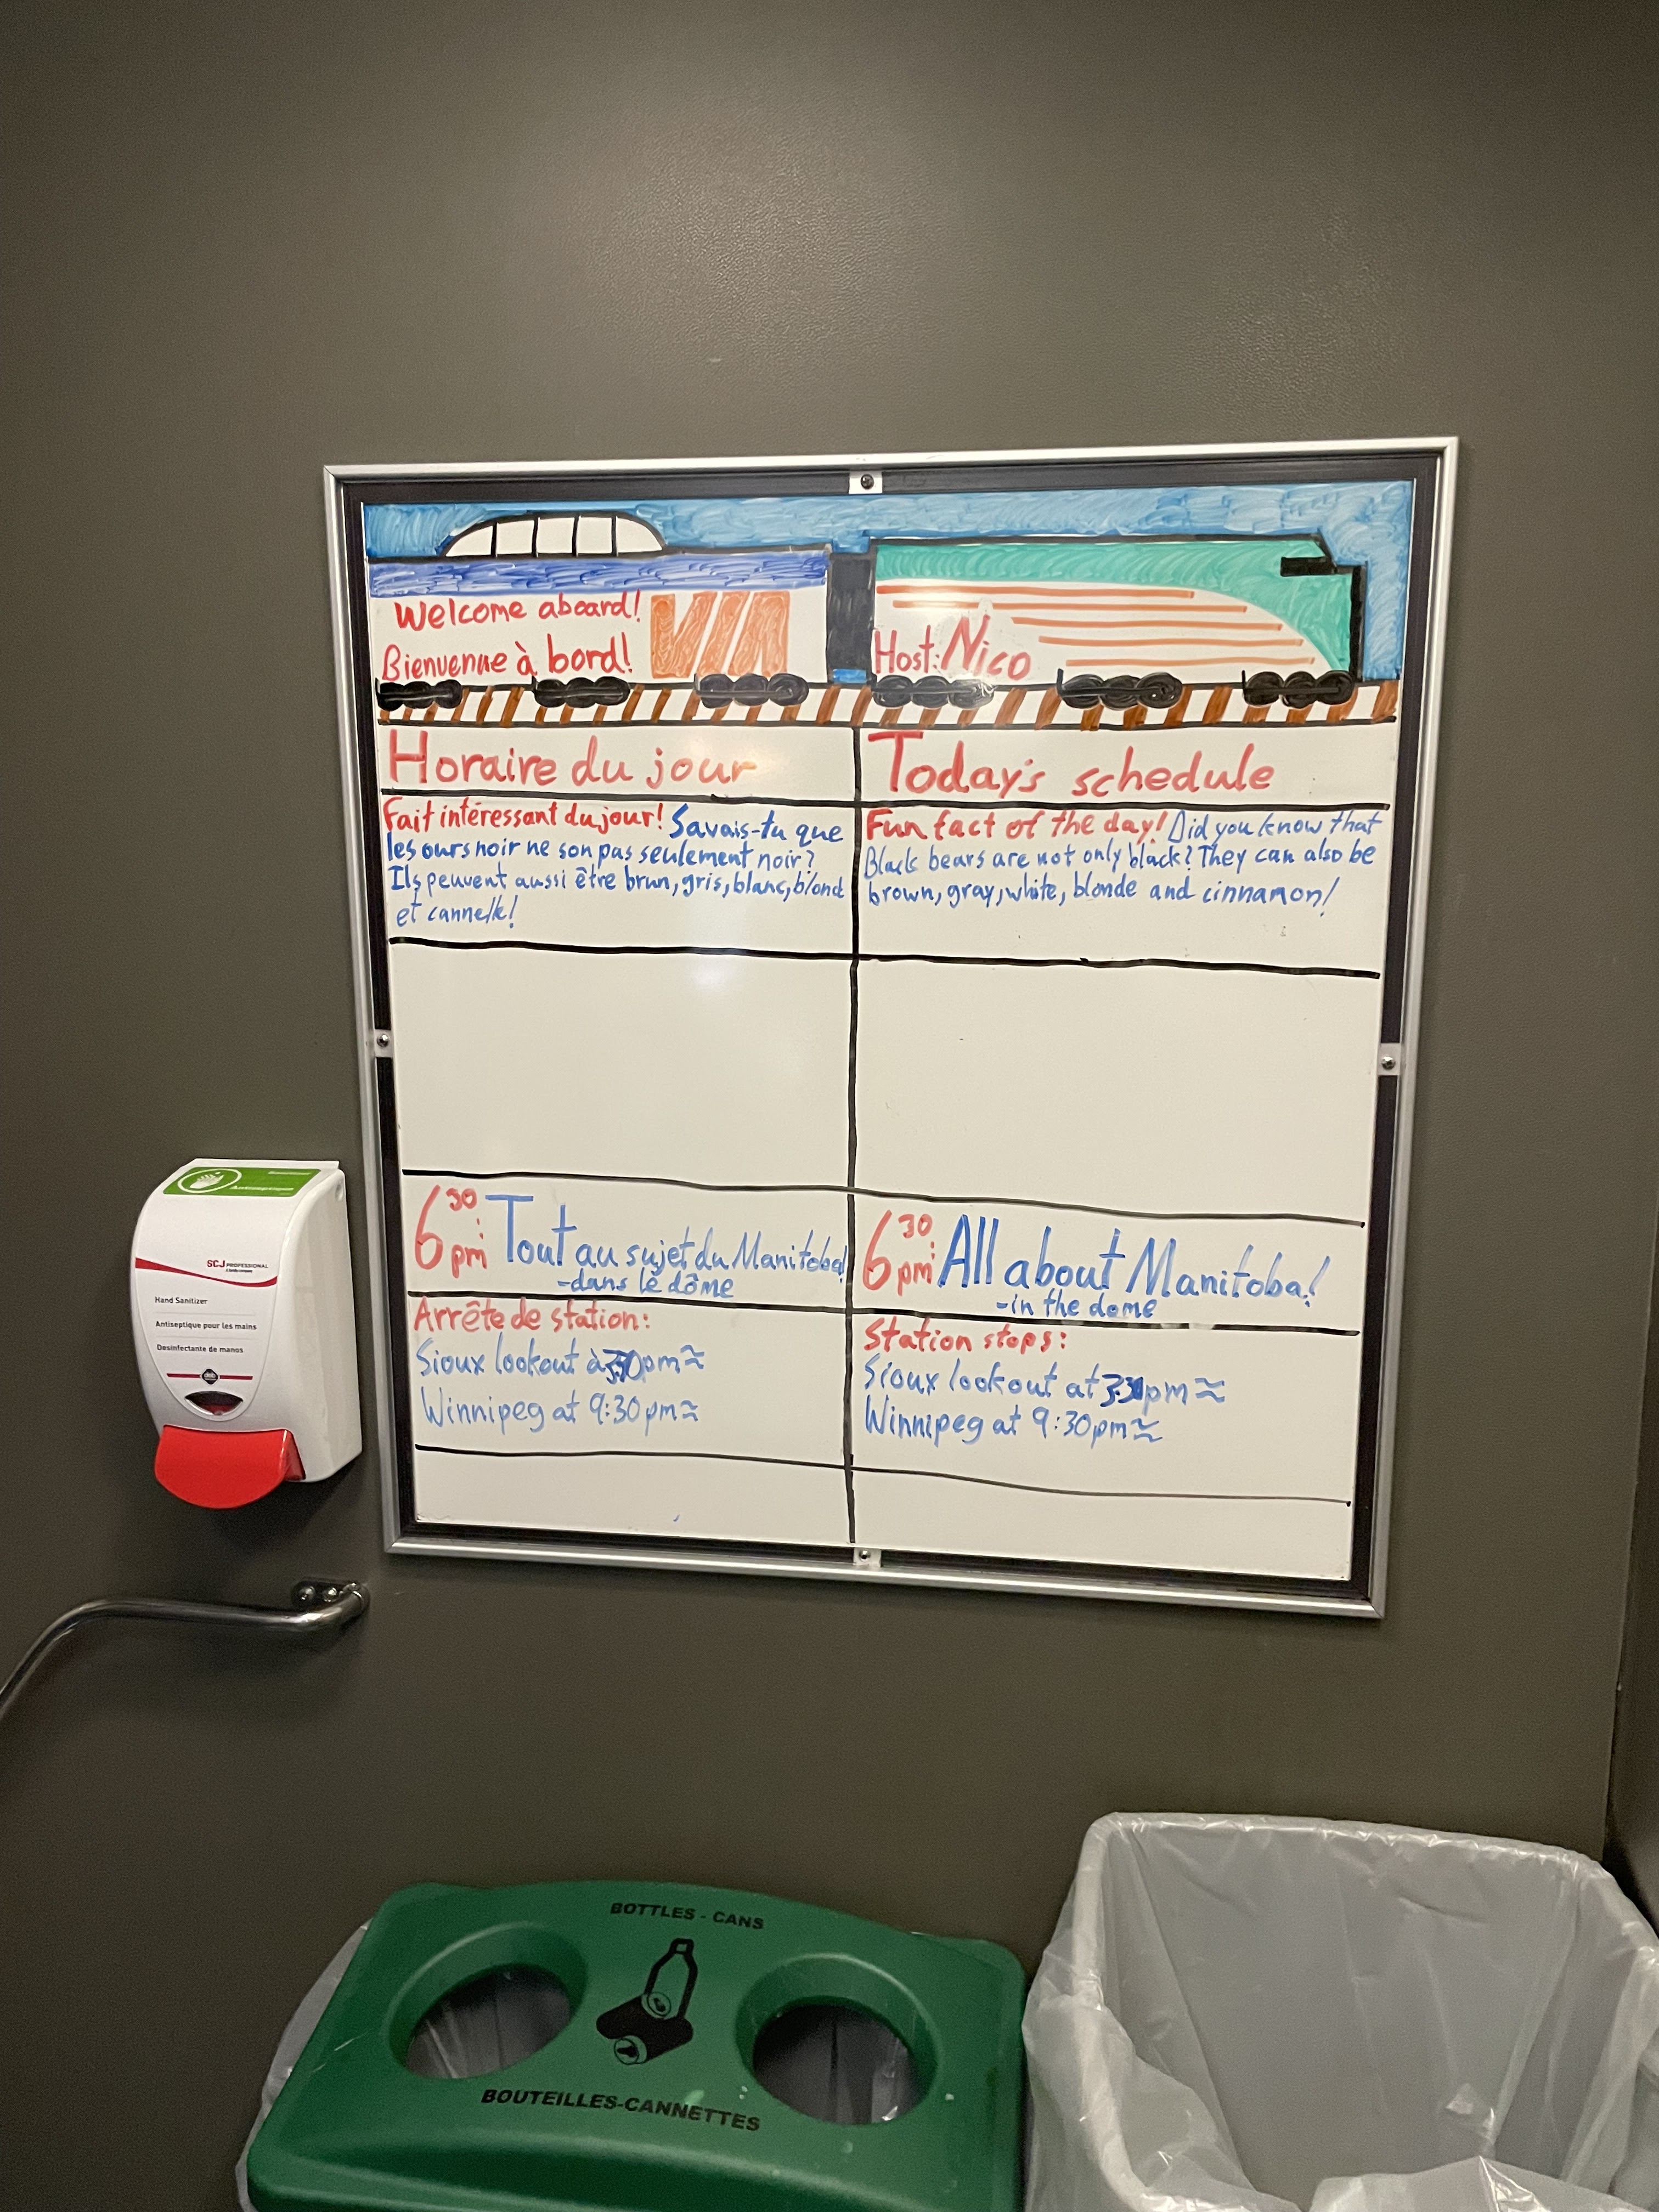 Welcome aboard!
Bienvenue à bord!
VIA
Host: Nico
Horaire du jour
Fait intéressant du jour! Savais-tu que
les ours noir ne son pas seulement noir?
Ils peuvent aussi être brun, gris, blanc, blond
et cannelle!
6:30 pm Tout au sujet du Manitoba!
-dans le dôme
Arrête de station:
Sioux lookout à pm≈
Winnipeg at 9:30pm≈
Today's schedule
Fun fact of the day! Did you know that
Black bears are not only black? They can also be
brown, gray, white, blonde and cinnamon!
6:30 pm All about Manitoba!
-in the dome
Station stops:
Sioux lookout at pm≈
Winnipeg at 9:30pm≈
SCJ PROFESSIONAL
Hand Sanitizer
Antiseptique pour les mains
Desinfectante de manos
BOTTLES - CANS
BOUTEILLES-CANNETTES